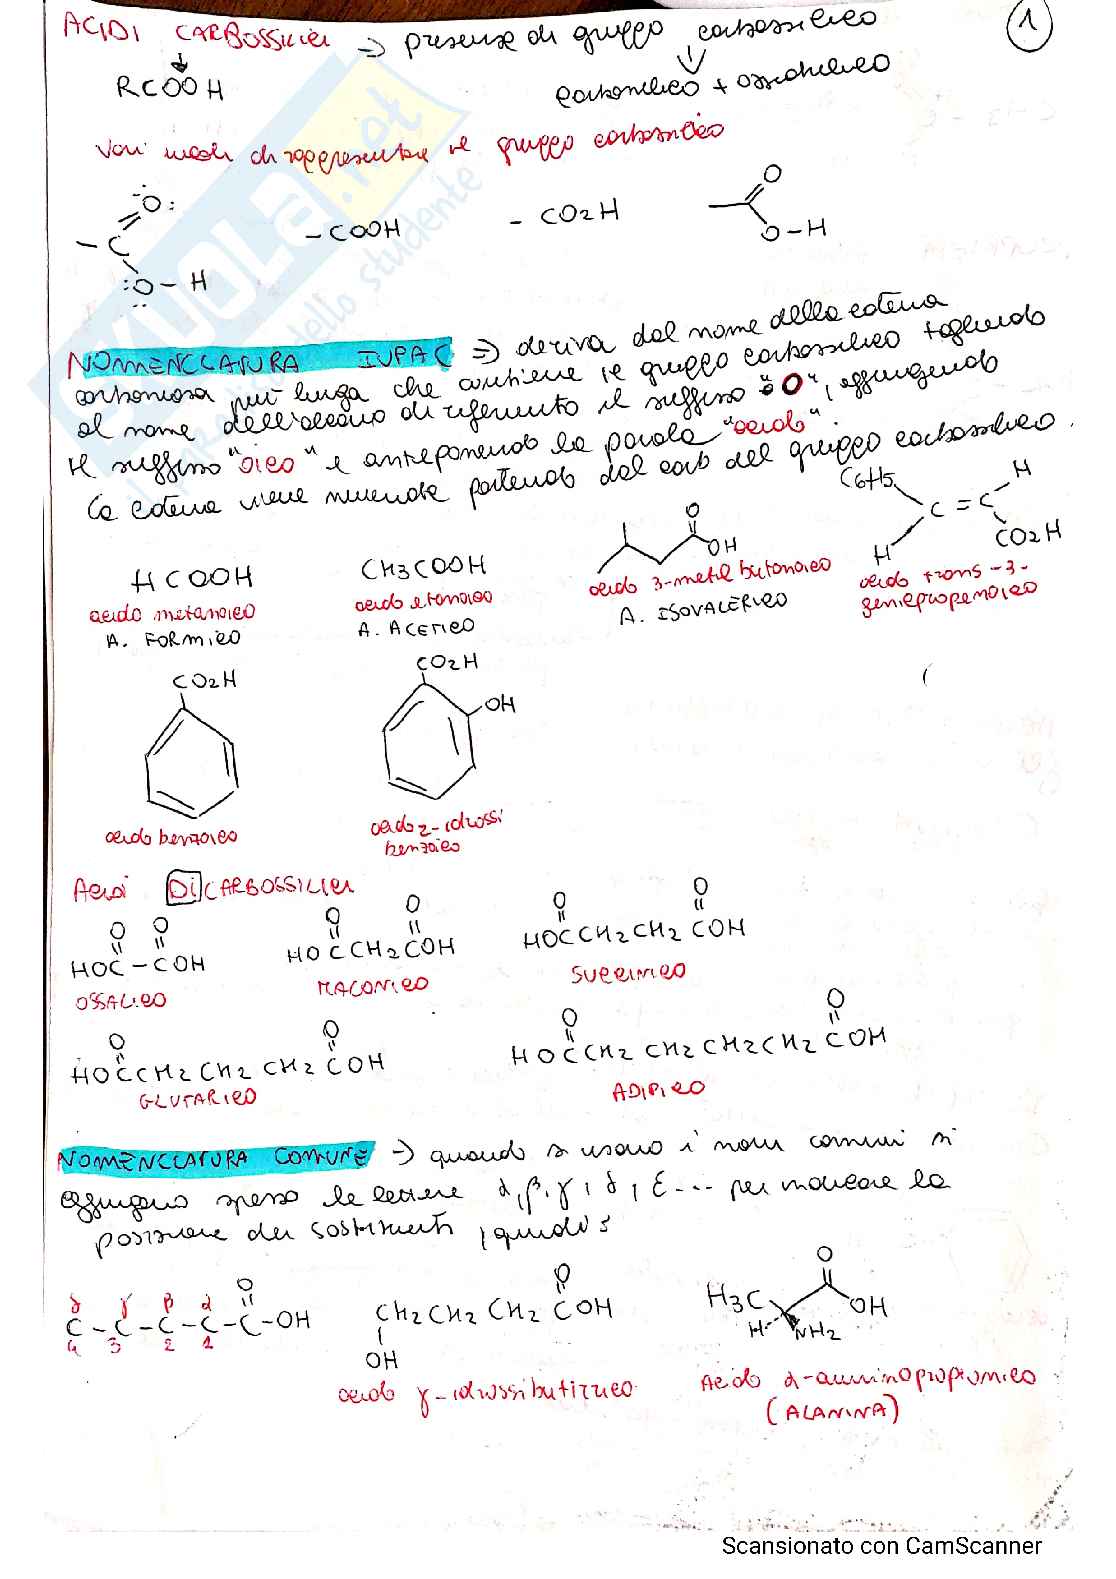 ACIDI CARBOSSILICI => presenza di gruppo carbossilico
1
RCOOH
carbonilico + ossidrilico
Vari modi di rappresentare il gruppo carbossilico
-C O: :O-H
-COOH
-CO2H
O O-H
NOMENCLATURA IUPAC => deriva dal nome della catena
carboniosa più lunga che contiene il gruppo carbossilico togliendo
al nome dell'alcano di riferimento il suffisso "O", aggiungendo
il suffisso "oico" e anteponendo la parola "acido".
La catena viene numerata partendo dal carb del gruppo carbossilico.
HCOOH
acido metanoico
A. FORMICO
CH3COOH
acido etanoico
A. ACETICO
O OH
acido 3-metil butanoico
A. ISOVALERICO
C6H5 H C=C H CO2H
acido trans-3-
fenilpropenoico
CO2H
acido benzoico
CO2H
OH
acido 2-idrossi
benzoico
Acidi DICARBOSSILICI
O O
HOC-COH
OSSALICO
O O
HOCCH2COH
MALONICO
O O
HOCCH2CH2COH
SUCCINICO
O O
HOCCH2CH2CH2COH
GLUTARICO
O O
HOCCH2CH2CH2CH2COH
ADIPICO
NOMENCLATURA COMUNE -> quando si usano i nomi comuni si
aggiungono spesso le lettere α, β, γ, δ, ε... per indicare la
posizione dei sostituenti, quindi:
δ γ β α O
C-C-C-C-C-OH
4 3 2 1
O
CH2CH2CH2COH
OH
acido γ-idrossibutirrico
O
H3C OH
H NH2
Acido α-amminopropionico
(ALANINA)
SKUOLA.not
il paradiso dello studente
Scansionato con CamScanner